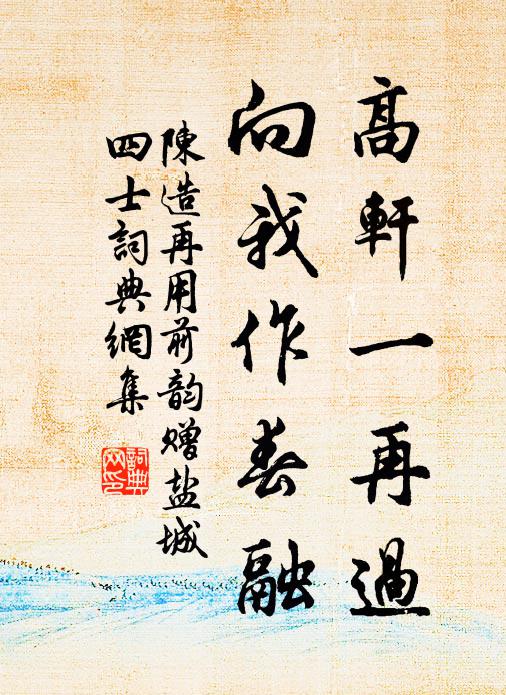 高軒一再過
向我作春融
陳造再用前韵贈盐城
四士詞典網集
詞典网印